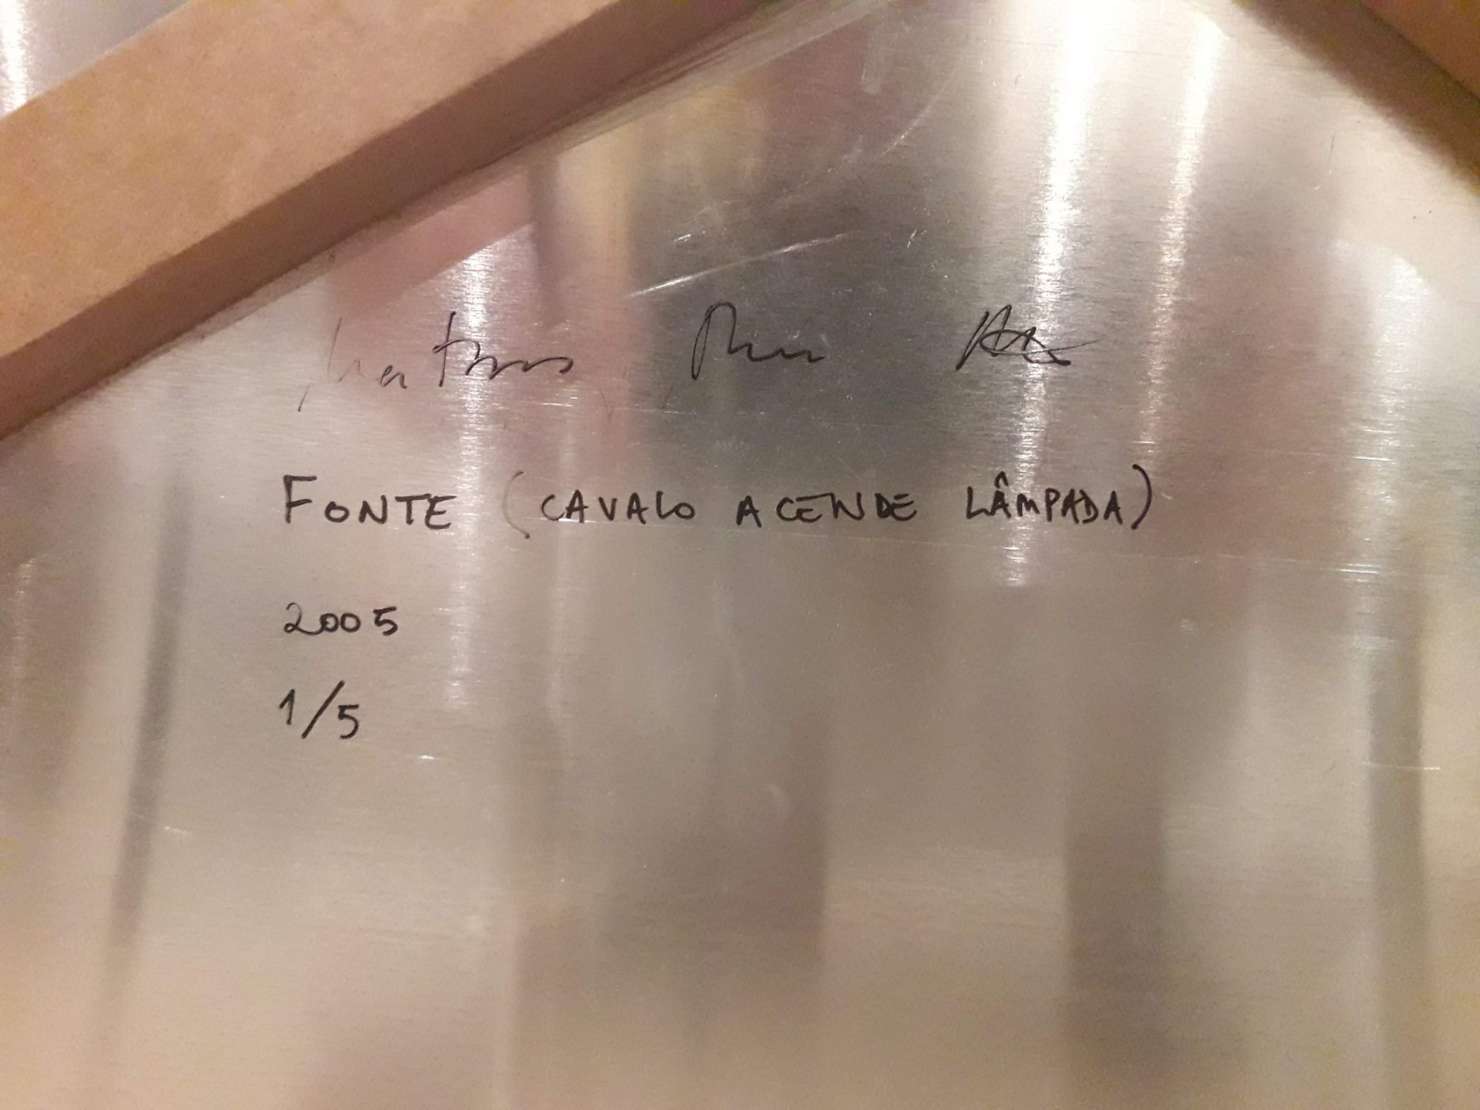 FONTE (CAVALO ACENDE LÂMPADA)
2005
1/5